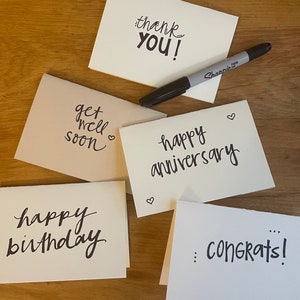 thank
YOU!
Sharpie
get
well
soon
happy
anniversary
happy
birthday
CONGRATS!